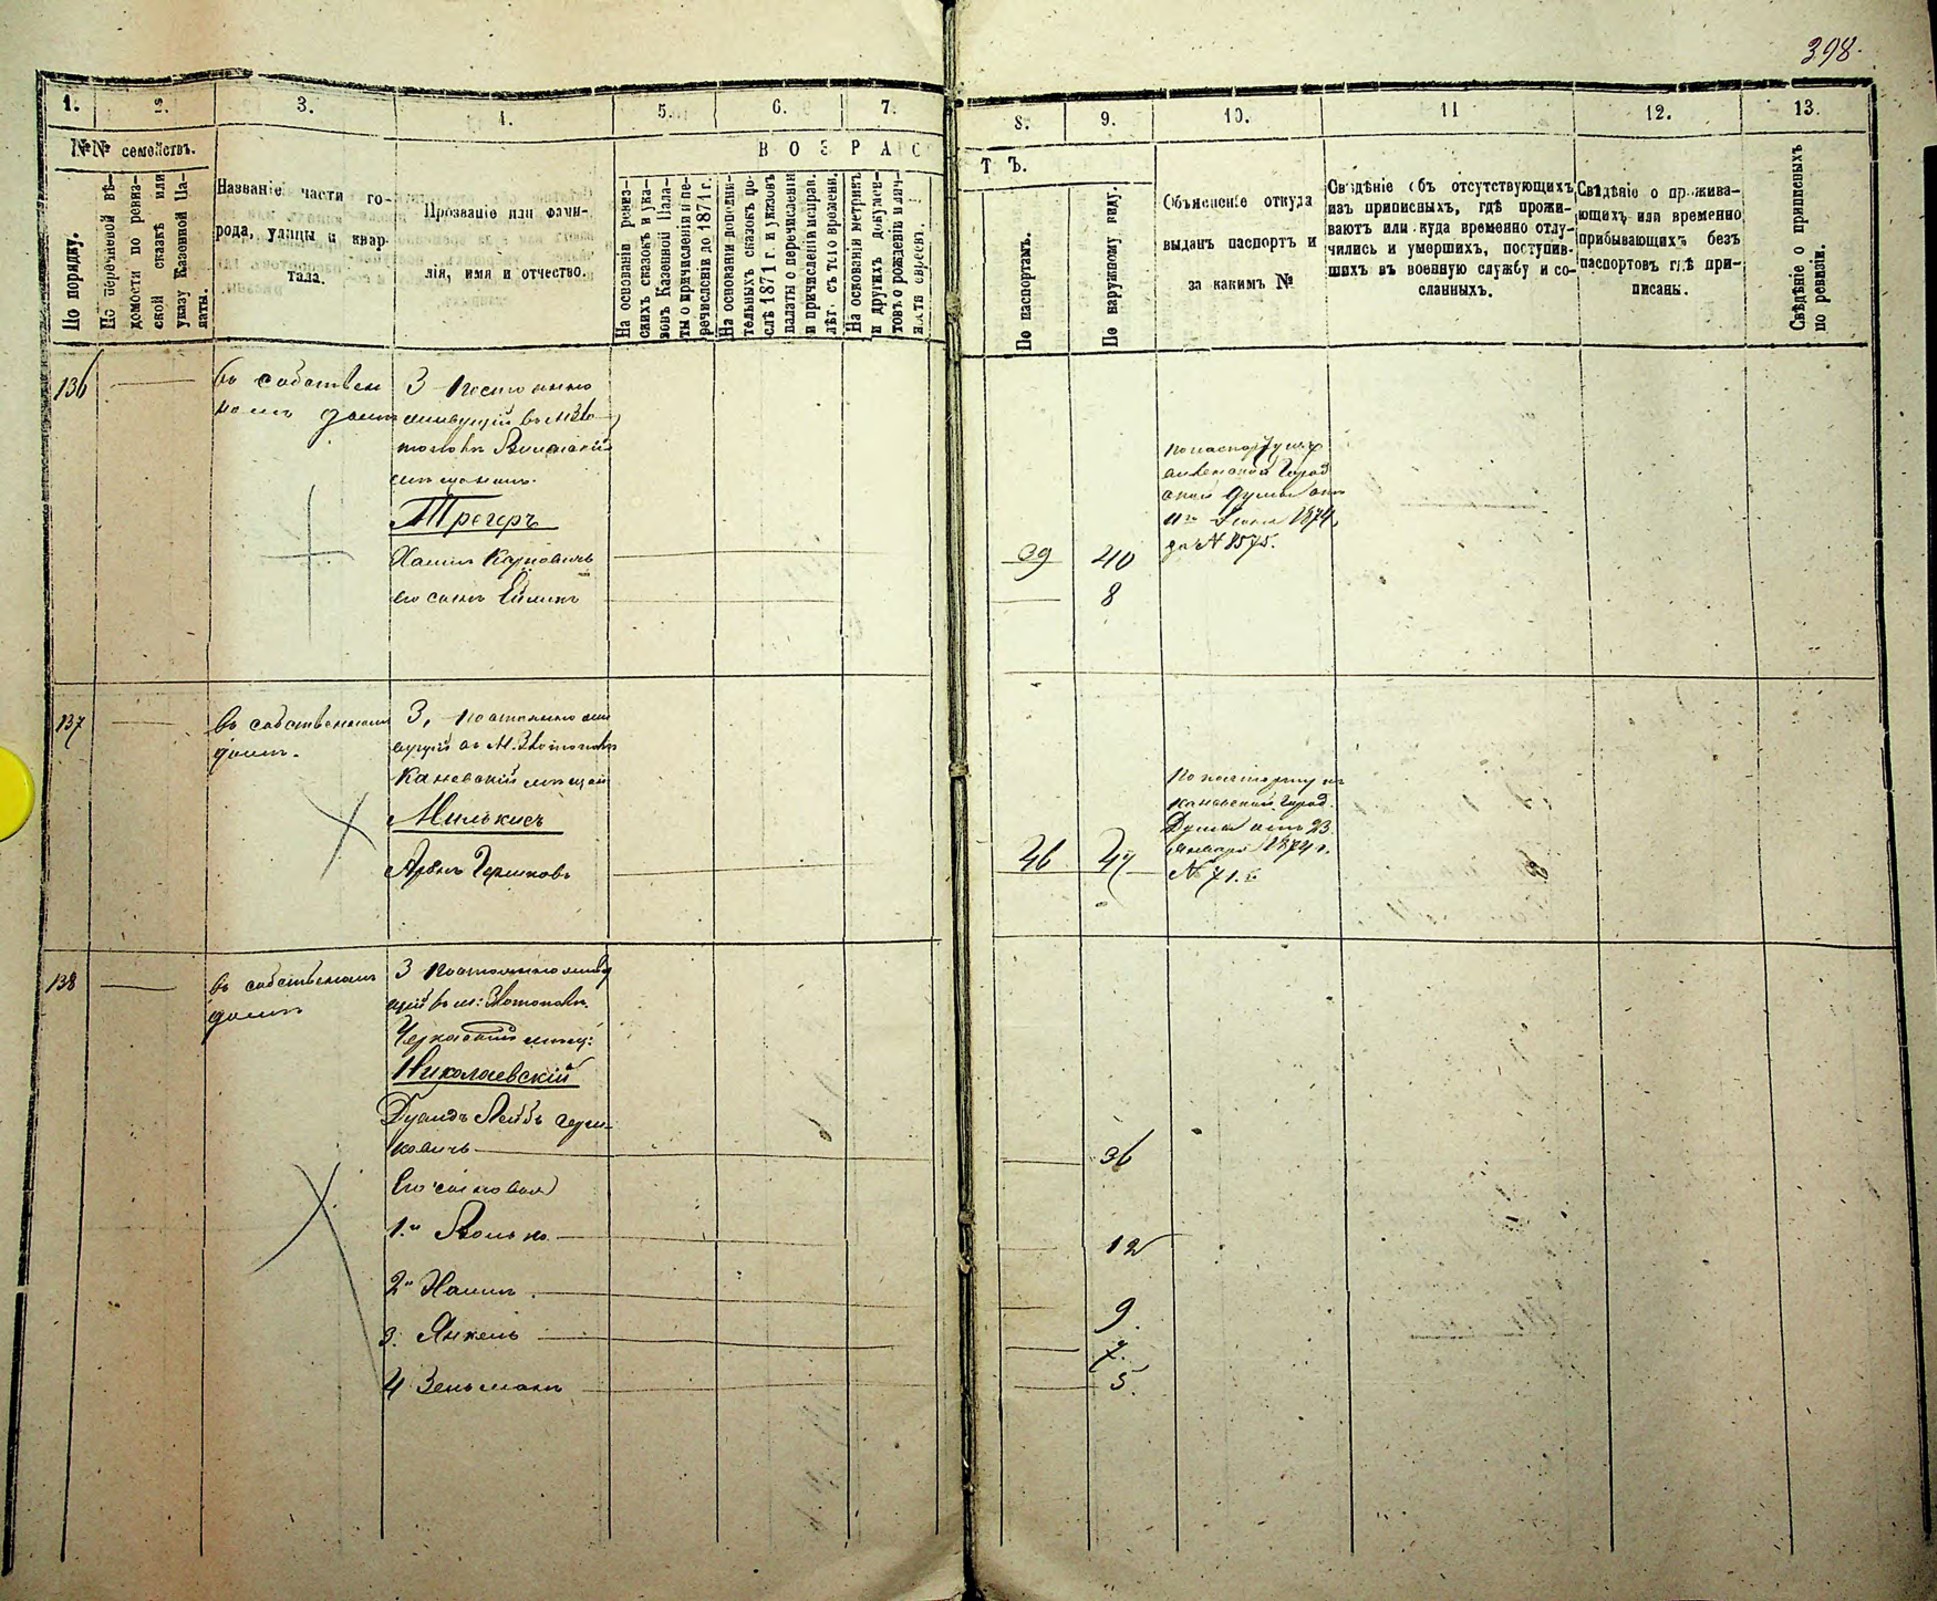 398.
1. 2. 3. 4. 5. 6. 7. 8. 9. 10. 11 12. 13.
№№ семействъ.
По порядку.
По перечневой вѣ-
домости по ревиз-
ской сказкѣ или
указу Казенной Па-
латы.
Названіе части го-
рода, улицы и квар-
тала.
Прозваніе или фами-
лія, имя и отчество.
ВОЗРАС
ТЪ.
На основаніи ревиз-
скихъ сказокъ и ука-
зовъ Казенной Пала-
ты о причисленіи и пе-
речисленіи до 1871 г.
На основаніи дополни-
тельныхъ сказокъ по-
слѣ 1871 г. и указовъ
палаты о перечисленіи
и причисленіи исправ.
лѣт. съ того времени.
На основаніи метрикъ
и другихъ докумен-
товъ о рожденіи
По паспортамъ.
По наружному виду.
Объясненіе откуда
выданъ паспортъ и
за какимъ №
Свѣдѣніе объ отсутствующихъ
изъ приписныхъ, гдѣ прожи-
ваютъ или куда временно отлу-
чились и умершихъ, поступив-
шихъ въ военную службу и со-
сланныхъ.
Свѣдѣніе о прожива-
ющихъ или временно
прибывающихъ безъ
паспортовъ гдѣ при-
писаны.
Свѣдѣніе о приписныхъ
по ревизіи.
136
въ собствен
номъ домѣ
3 Постоянно
живущій въ м. Зло
тополѣ
Трегеръ
Хаимъ
39 40
его сынъ
8
по паспорту
Город
ской Думы отъ
1874
за № 1575.
137
въ собственномъ
домѣ.
3, Постоянно жи
вущій въ м. Златополѣ
Каневскій мѣщан
Милькисъ
Аронъ Гершковъ
46 47
По паспорту изъ
Каневской Город.
Думы отъ 23
Января 1874 г.
№ 71.
138
въ собственомъ
домѣ
3 Постоянно живу
щій въ м: Златополѣ.
Черкаскій мѣщ:
Николаевскій
Лейбъ Герш-
ковичъ
36
Его сыновья
1.й Волько
12
2й Хаимъ
9.
3. Янкель
7.
4 Зельманъ
5.